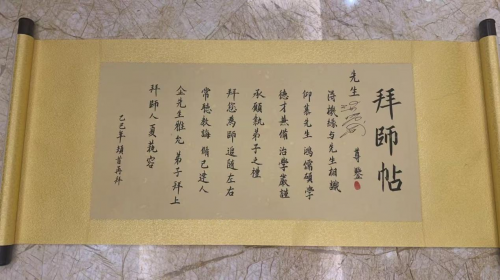 拜師帖
先生 尊鑒
得機緣与先生相識
仰慕先生鴻儒碩學
德才兼備治學嚴謹
承願執弟子之禮
拜您為師追隨左右
常聽教誨 己達人
企先生雅允弟子拜上
拜師人夏 容
乙巳年 頓首再拜